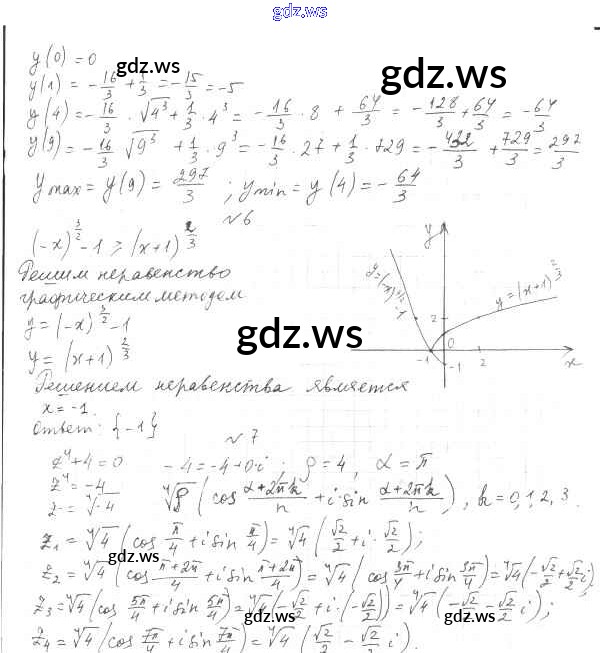 gdz.ws
y(0)=0
y(1) = -16/3 + 1/3 = -15/3 = -5
y(4) = -16/3 · √4³ + 1/3 · 4³ = -16/3 · 8 + 64/3 = -128/3 + 64/3 = -64/3
y(9) = -16/3 · √9³ + 1/3 · 9³ = -16/3 · 27 + 1/3 · 729 = -432/3 + 729/3 = 297/3
y max = y(9) = 297/3 ; y min = y(4) = -64/3
№6
(-x)^(3/2) - 1 ≥ (x+1)^(2/3)
Решим неравенство
графическим методом
y = (-x)^(3/2) - 1
y = (x+1)^(2/3)
Решением неравенства является
x = -1.
Ответ: {-1}
y
y=(-x)^(3/2) -1
y=(x+1)^(2/3)
2
-1
0
2
-1
x
№7
z⁴+4=0 -4=-4+0i ; ρ=4, α=π
z⁴=-4
z=⁴√-4 ⁿ√ρ (cos (α+2πk)/n + i sin (α+2πk)/n), k=0,1,2,3.
z₁ = ⁴√4 (cos π/4 + i sin π/4) = ⁴√4 (√2/2 + i · √2/2);
z₂ = ⁴√4 (cos (π+2π)/4 + i sin (π+2π)/4) = ⁴√4 (cos 3π/4 + i sin 3π/4) = ⁴√4 (-√2/2 + √2/2 i);
z₃ = ⁴√4 (cos 5π/4 + i sin 5π/4) = ⁴√4 (-√2/2 + i · (-√2/2)) = ⁴√4 (-√2/2 - √2/2 i);
z₄ = ⁴√4 (cos 7π/4 + i sin 7π/4) = ⁴√4 (√2/2 - √2/2 i).
gdz.ws
gdz.ws
gdz.ws
gdz.ws
gdz.ws
gdz.ws